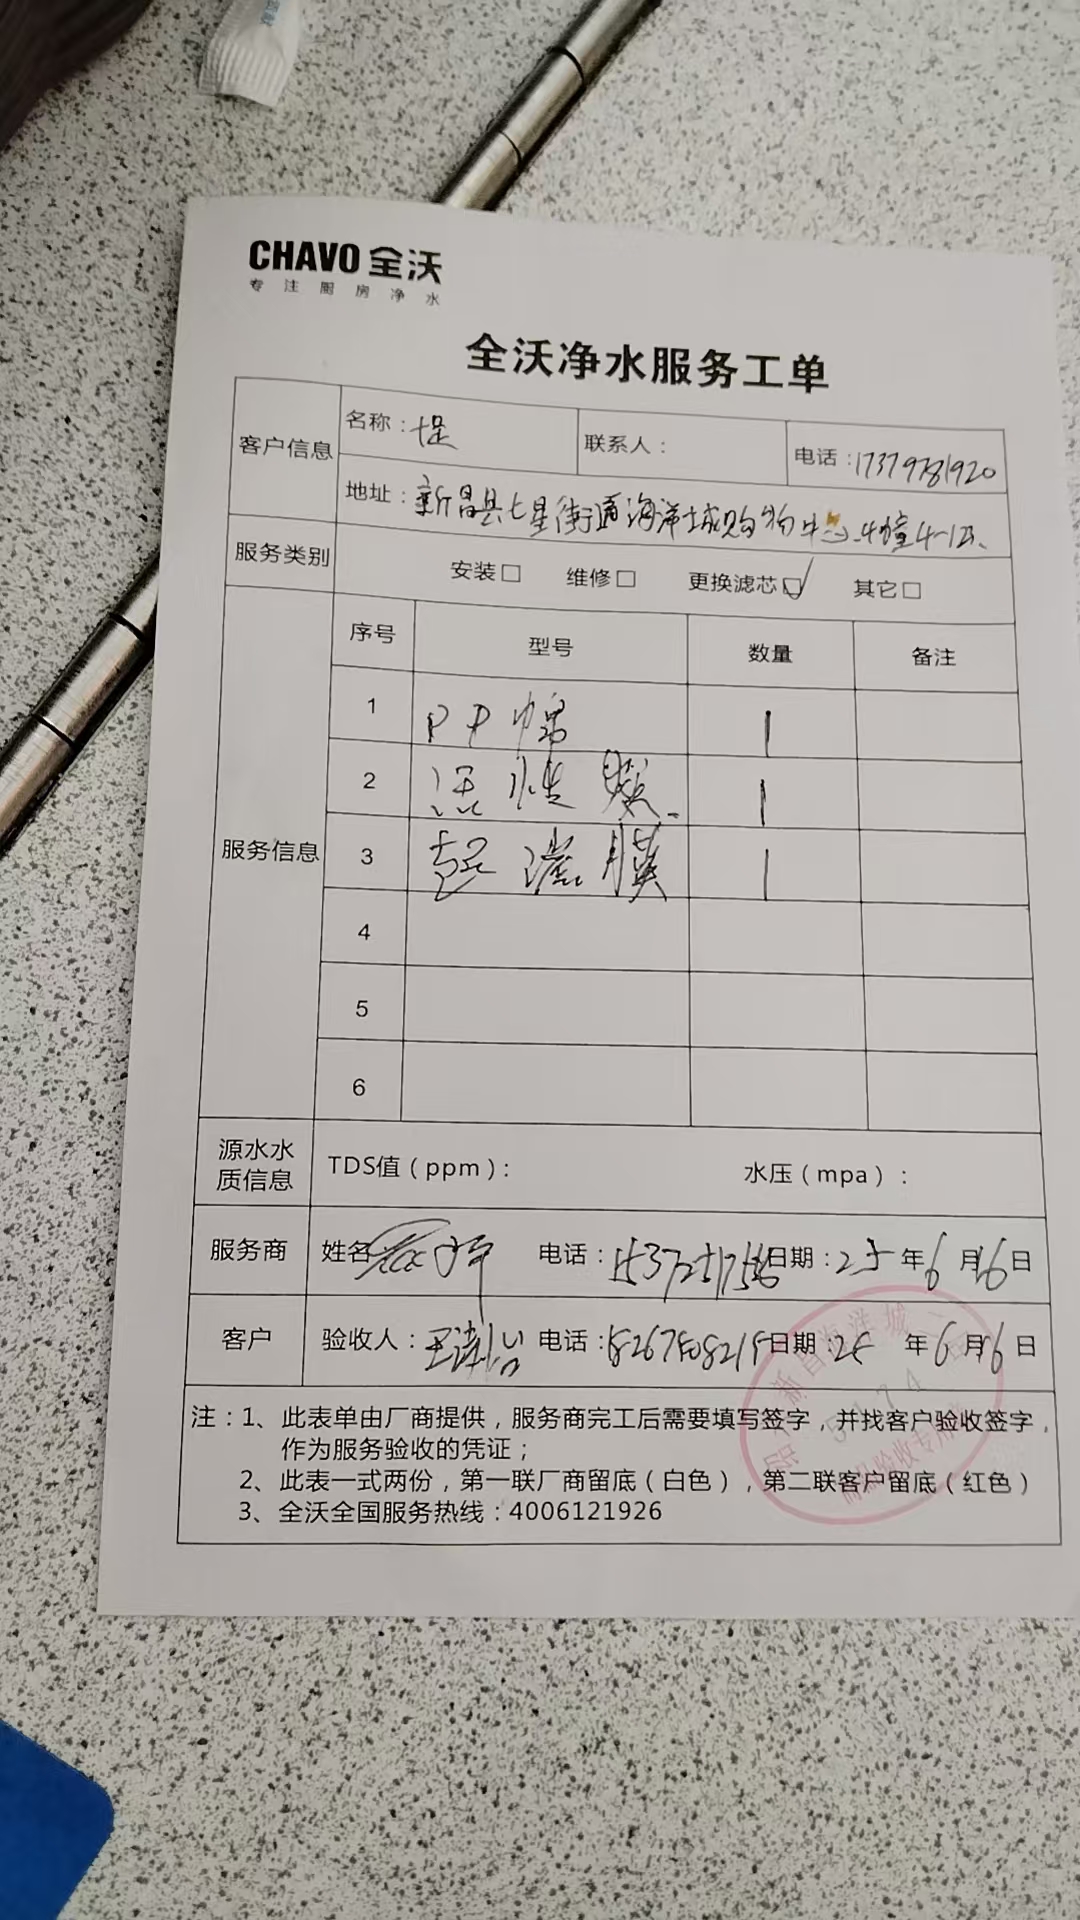 CHAVO 全沃
专注厨房净水
全沃净水服务工单
客户信息 名称: 联系人: 电话:17379781920
地址:新昌县七星街道海洋城购物中心4幢4-1
服务类别 安装□ 维修□ 更换滤芯☑ 其它□
服务信息 序号 型号 数量 备注
1 PP棉 1
2 活性炭 1
3 超滤膜 1
4
5
6
源水水质信息 TDS值(ppm): 水压(mpa):
服务商 姓名 电话: 日期:25年6月16日
客户 验收人:王 电话: 日期:25年6月16日
注:1、此表单由厂商提供,服务商完工后需要填写签字,并找客户验收签字,
作为服务验收的凭证;
2、此表一式两份,第一联厂商留底(白色),第二联客户留底(红色)
3、全沃全国服务热线:4006121926
5174
验收专用